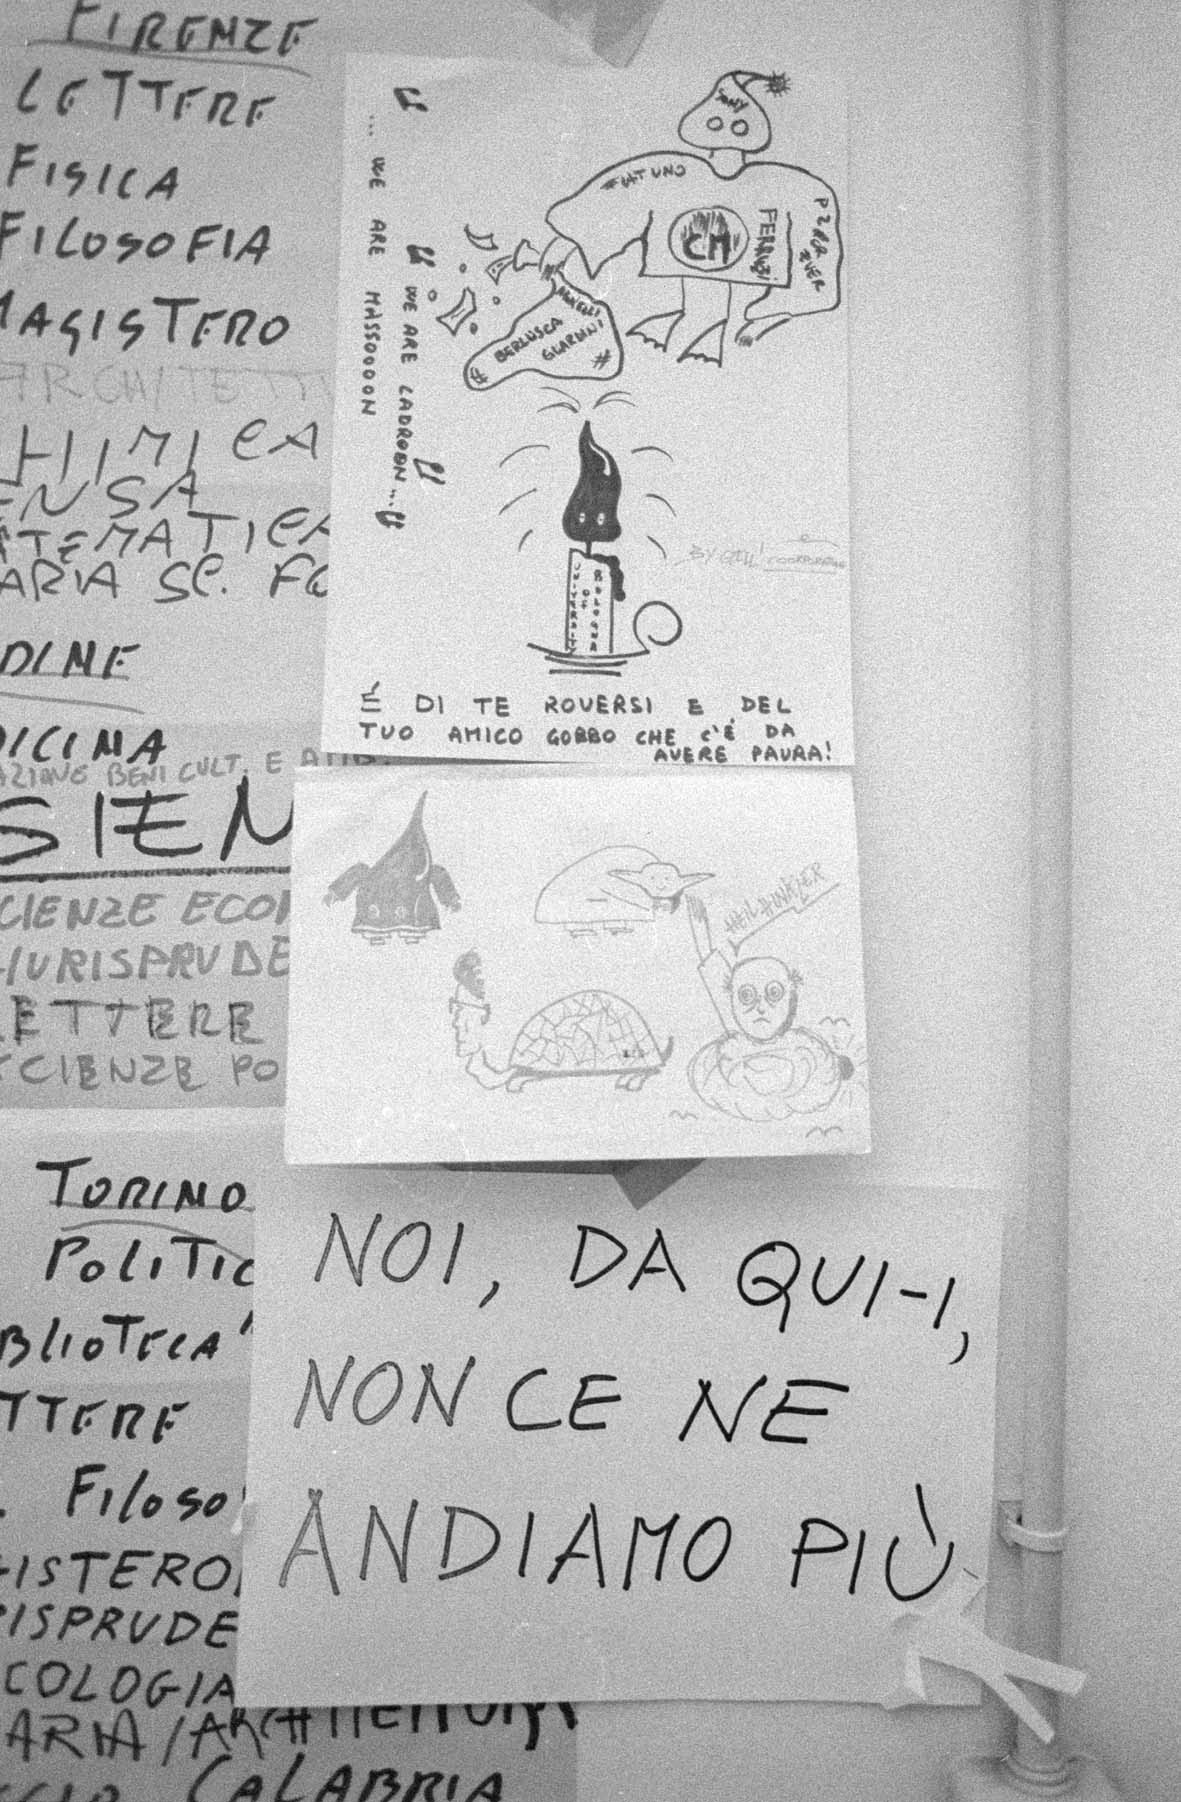 FIRENZE
LETTERE
FISICA
FILOSOFIA
MAGISTERO
ARCHITETTU
HIMICA
ENSA
ATEMATICA
ARIA SC. FO
DINE
DICINA
AZIONE BENI CULT. E
SIEN
CIENZE ECON
GIURISPRUDE
LETTERE
SCIENZE PO
TORINO
POLITIC
BLIOTECA
TTERE
FILOSO
GISTERO
RISPRUDE
COLOGIA
ARIA/ARCHITETTURA
CALABRIA
... WE ARE MASSOOOON
WE ARE LADROON...
TONY
FIAT UNO
CM
FERRUZI
BERLUSCA
GIARDINI
UNIVERSITY
OF
BOLOGNA
BY
É DI TE ROVERSI E DEL
TUO AMICO GOBBO CHE C'É DA
AVERE PAURA!
HEIL HUNKLER
NOI, DA QUI-I,
NON CE NE
ANDIAMO PIÙ